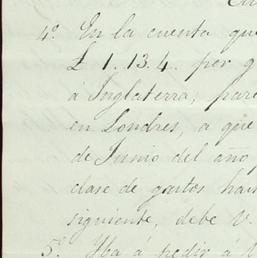 4º. En la cuenta que
£ 1.13.4. por g
á Inglaterra; pare
en Londres, a que
de Junio del año
clase de gastos hai
siguiente, debe V.
5º. Iba á pedir á V